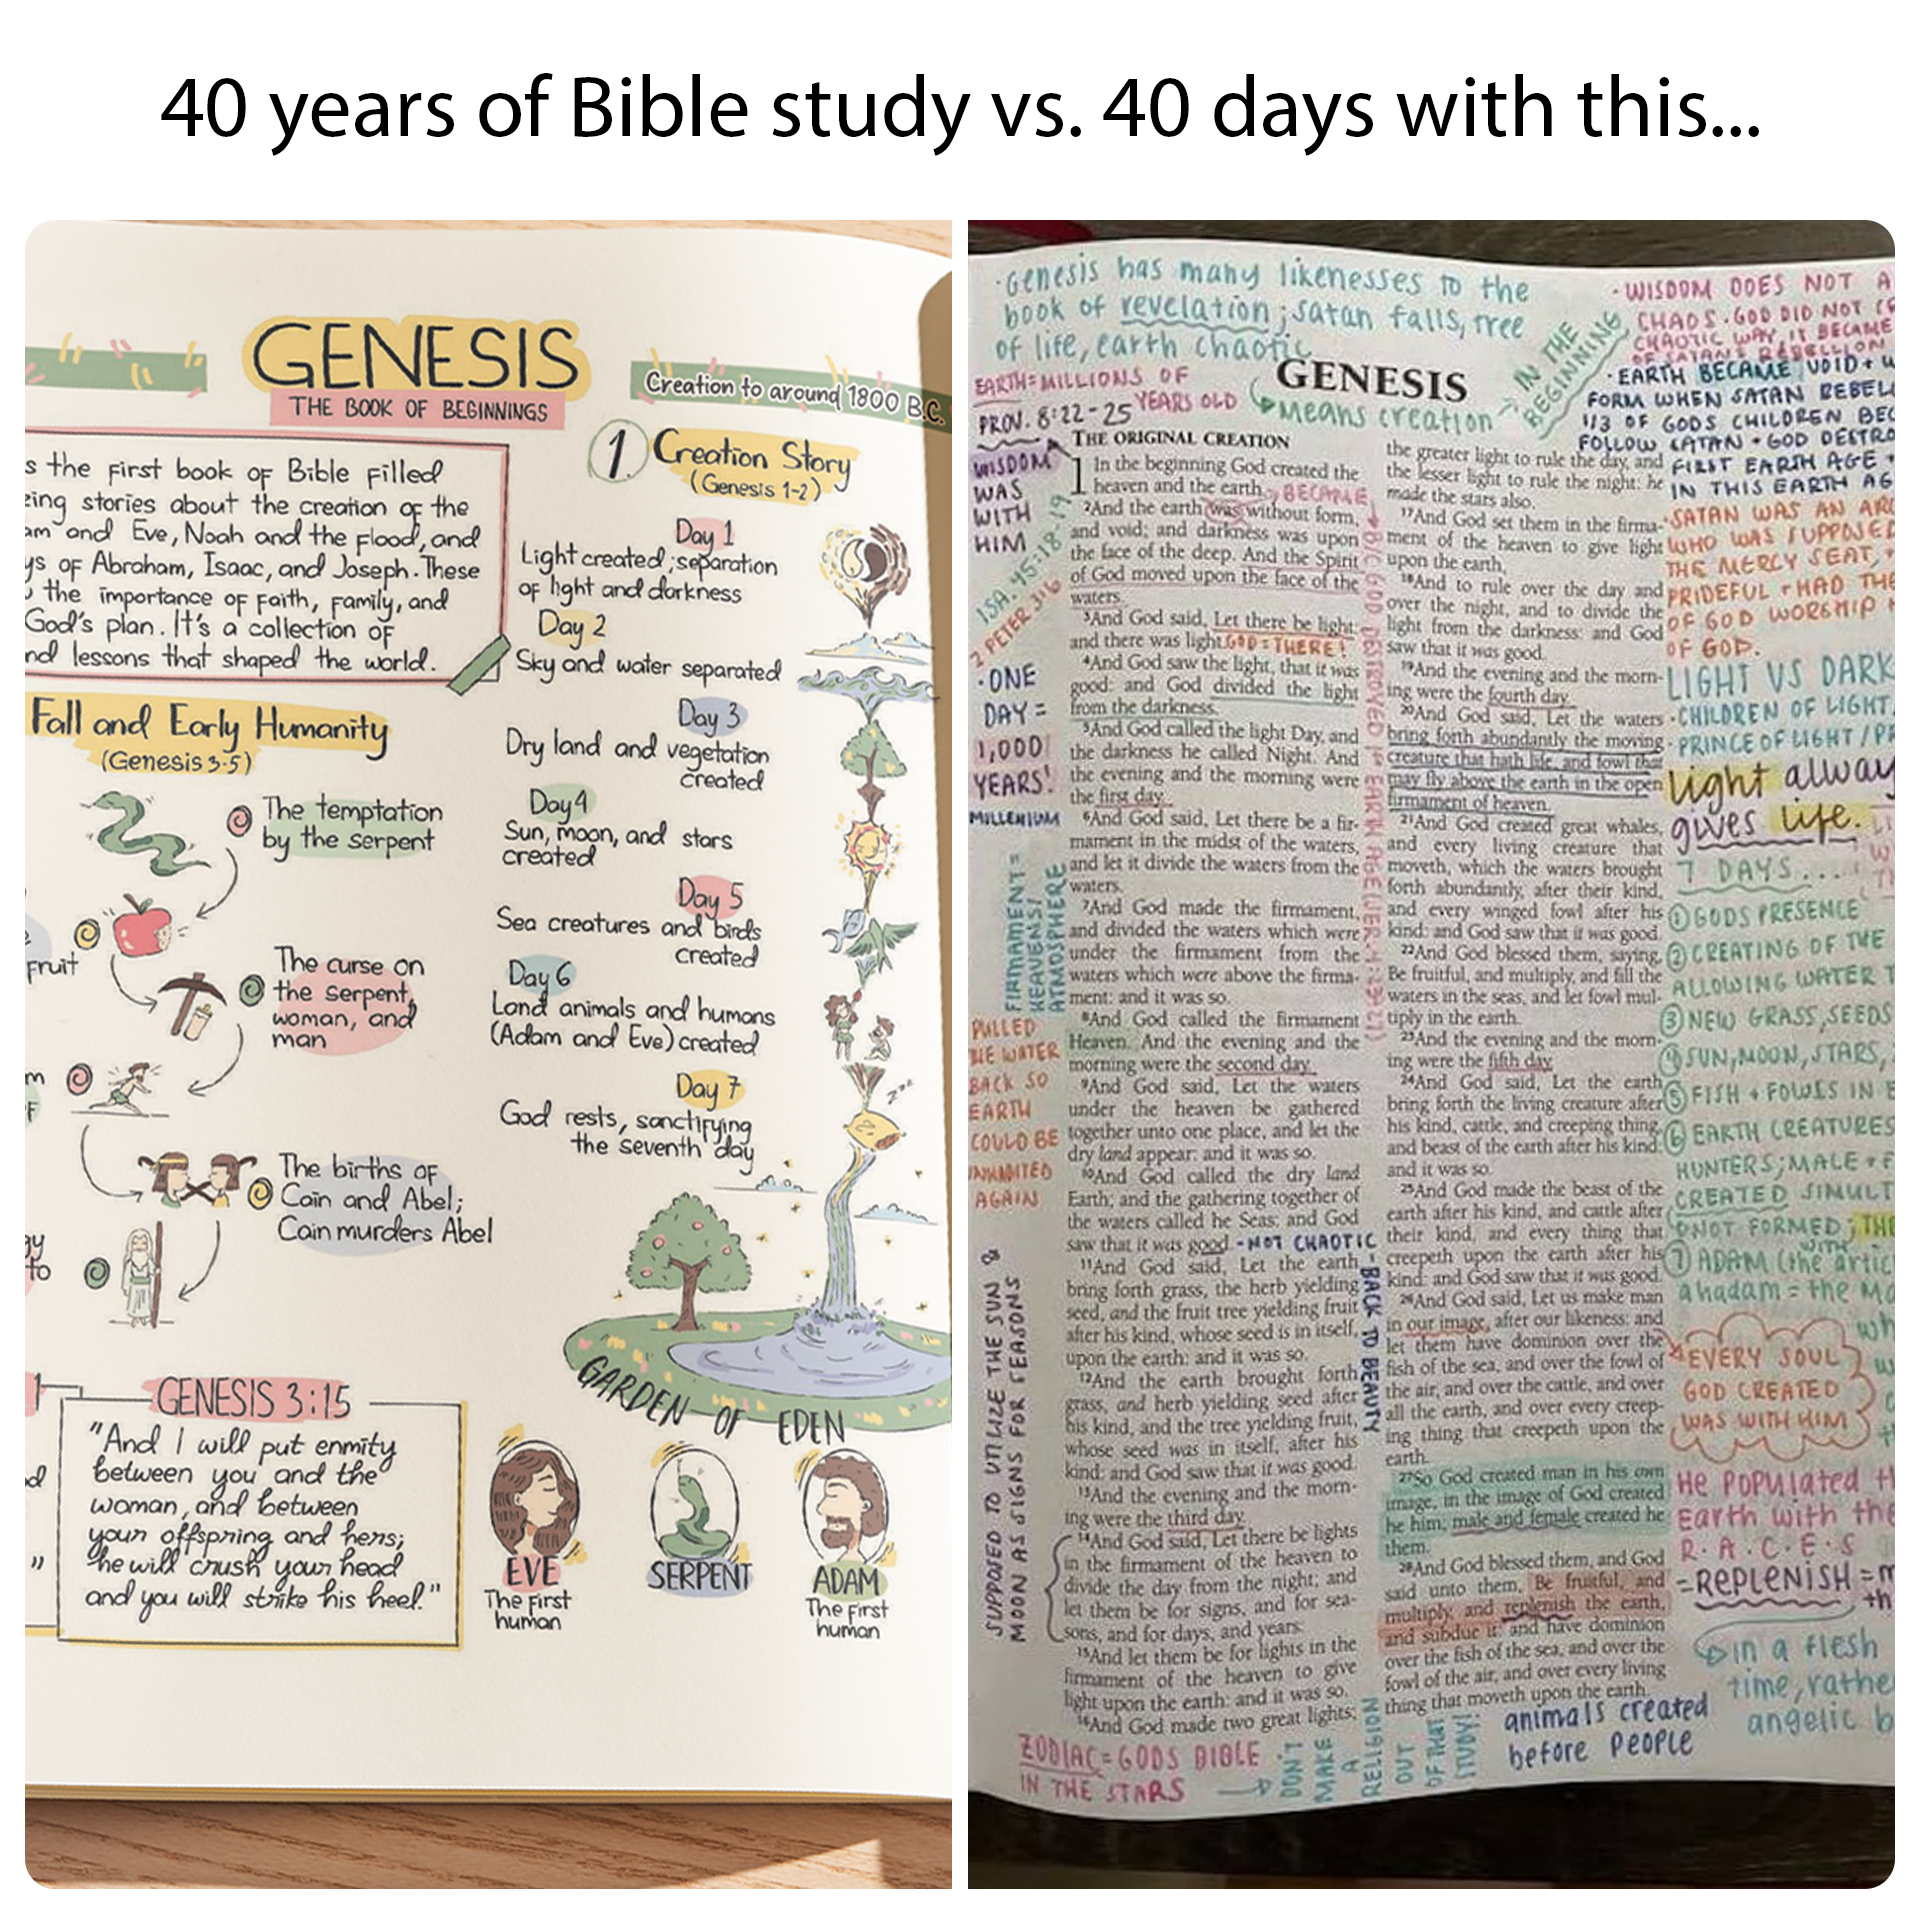 40 years of Bible study vs. 40 days with this...
GENESIS
THE BOOK OF BEGINNINGS
Creation to around 1800 B.C.
s the first book of Bible filled
zing stories about the creation of the
am and Eve, Noah and the flood, and
ys of Abraham, Isaac, and Joseph. These
the importance of faith, family, and
God's plan. It's a collection of
nd lessons that shaped the world.
Fall and Early Humanity
(Genesis 3-5)
The temptation
by the serpent
fruit
The curse on
the serpent,
woman, and
man
The births of
Cain and Abel;
Cain murders Abel
to
GENESIS 3:15
"And I will put enmity
between you and the
woman, and between
your offspring and hers;
he will crush your head
and you will strike his heel."
1. Creation Story
(Genesis 1-2)
Day 1
Light created; separation
of light and darkness
Day 2
Sky and water separated
Day 3
Dry land and vegetation
created
Day 4
Sun, moon, and stars
created
Day 5
Sea creatures and birds
created
Day 6
Land animals and humans
(Adam and Eve) created
Day 7
God rests, sanctifying
the seventh day
zzz
GARDEN OF EDEN
EVE
The first
human
SERPENT
ADAM
The first
human
·Genesis has many likenesses to the
book of revelation; satan falls, tree
of life, earth chaotic
EARTH=MILLIONS OF
YEARS OLD
PROV. 8:22-25
GENESIS
Means creation
IN THE
BEGINNING
WISDOM
WAS
WITH
HIM
ISA. 45:18-19
2 PETER 3:6
·ONE
DAY =
1,000
YEARS!
MILLENIUM
FIRMAMENT =
HEAVENS/
ATMOSPHERE
PULLED
THE WATER
BACK SO
EARTH
COULD BE
INHABITED
AGAIN
SUPPOSED TO UTILIZE THE SUN &
MOON AS SIGNS FOR SEASONS
THE ORIGINAL CREATION
1 In the beginning God created the
heaven and the earth. BECAME
2And the earth was without form,
and void; and darkness was upon
the face of the deep. And the Spirit
of God moved upon the face of the
waters.
3And God said, Let there be light:
and there was light. GOD = THERE!
4And God saw the light, that it was
good: and God divided the light
from the darkness.
5And God called the light Day, and
the darkness he called Night. And
the evening and the morning were
the first day.
6And God said, Let there be a fir-
mament in the midst of the waters,
and let it divide the waters from the
waters.
7And God made the firmament,
and divided the waters which were
under the firmament from the
waters which were above the firma-
ment: and it was so.
8And God called the firmament
Heaven. And the evening and the
morning were the second day.
9And God said, Let the waters
under the heaven be gathered
together unto one place, and let the
dry land appear: and it was so.
10And God called the dry land
Earth; and the gathering together of
the waters called he Seas: and God
saw that it was good. - NOT CHAOTIC
11And God said, Let the earth
bring forth grass, the herb yielding
seed, and the fruit tree yielding fruit
after his kind, whose seed is in itself,
upon the earth: and it was so.
12And the earth brought forth
grass, and herb yielding seed after
his kind, and the tree yielding fruit,
whose seed was in itself, after his
kind: and God saw that it was good.
13And the evening and the morn-
ing were the third day.
14And God said, Let there be lights
in the firmament of the heaven to
divide the day from the night; and
let them be for signs, and for sea-
sons, and for days, and years:
15And let them be for lights in the
firmament of the heaven to give
light upon the earth: and it was so.
16And God made two great lights;
B/C GOD DESTROYED 1st EARTH AGE
BACK TO BEAUTY
the greater light to rule the day, and
the lesser light to rule the night: he
made the stars also.
17And God set them in the firma-
ment of the heaven to give light
upon the earth,
18And to rule over the day and
over the night, and to divide the
light from the darkness: and God
saw that it was good.
19And the evening and the morn-
ing were the fourth day.
20And God said, Let the waters
bring forth abundantly the moving
creature that hath life, and fowl that
may fly above the earth in the open
firmament of heaven.
21And God created great whales,
and every living creature that
moveth, which the waters brought
forth abundantly, after their kind,
and every winged fowl after his
kind: and God saw that it was good.
22And God blessed them, saying,
Be fruitful, and multiply, and fill the
waters in the seas, and let fowl mul-
tiply in the earth.
23And the evening and the morn-
ing were the fifth day.
24And God said, Let the earth
bring forth the living creature after
his kind, cattle, and creeping thing,
and beast of the earth after his kind:
and it was so.
25And God made the beast of the
earth after his kind, and cattle after
their kind, and every thing that
creepeth upon the earth after his
kind: and God saw that it was good.
26And God said, Let us make man
in our image, after our likeness: and
let them have dominion over the
fish of the sea, and over the fowl of
the air, and over the cattle, and over
all the earth, and over every creep-
ing thing that creepeth upon the
earth.
27So God created man in his own
image, in the image of God created
he him; male and female created he
them.
28And God blessed them, and God
said unto them, Be fruitful, and
multiply, and replenish the earth,
and subdue it: and have dominion
over the fish of the sea, and over the
fowl of the air, and over every living
thing that moveth upon the earth.
·WISDOM DOES NOT A
CHAOS. GOD DID NOT
CHAOTIC WAY, IT BECAME
OF SATAN'S REBELLION
·EARTH BECAME VOID +
FORM WHEN SATAN REBEL
1/3 OF GODS CHILDREN BEC
FOLLOW SATAN + GOD DESTRO
FIRST EARTH AGE
IN THIS EARTH AG
·SATAN WAS AN ARC
WHO WAS SUPPOSED
THE MERCY SEAT,
PRIDEFUL + HAD THE
OF GOD WORSHIP
OF GOD.
LIGHT VS DARK
·CHILDREN OF LIGHT
·PRINCE OF LIGHT / PR
Light alway
gives life.
7 DAYS...
① GODS PRESENCE
② CREATING OF THE
ALLOWING WATER T
③ NEW GRASS, SEEDS
④ SUN, MOON, STARS,
⑤ FISH + FOWLS IN
⑥ EARTH CREATURES
HUNTERS; MALE + F
CREATED SIMULT
NOT FORMED; THE
WITH
⑦ ADAM (the artic
ahadam = the
EVERY SOUL
GOD CREATED
WAS WITH HIM
He populated th
earth with the
R·A·C·E·S
=REPLENISH =
in a flesh
time, rathe
angelic b
animals created
before people
ZODIAC = GODS BIBLE
IN THE STARS
DON'T
MAKE
A
RELIGION
OUT
OF THAT
STUDY!